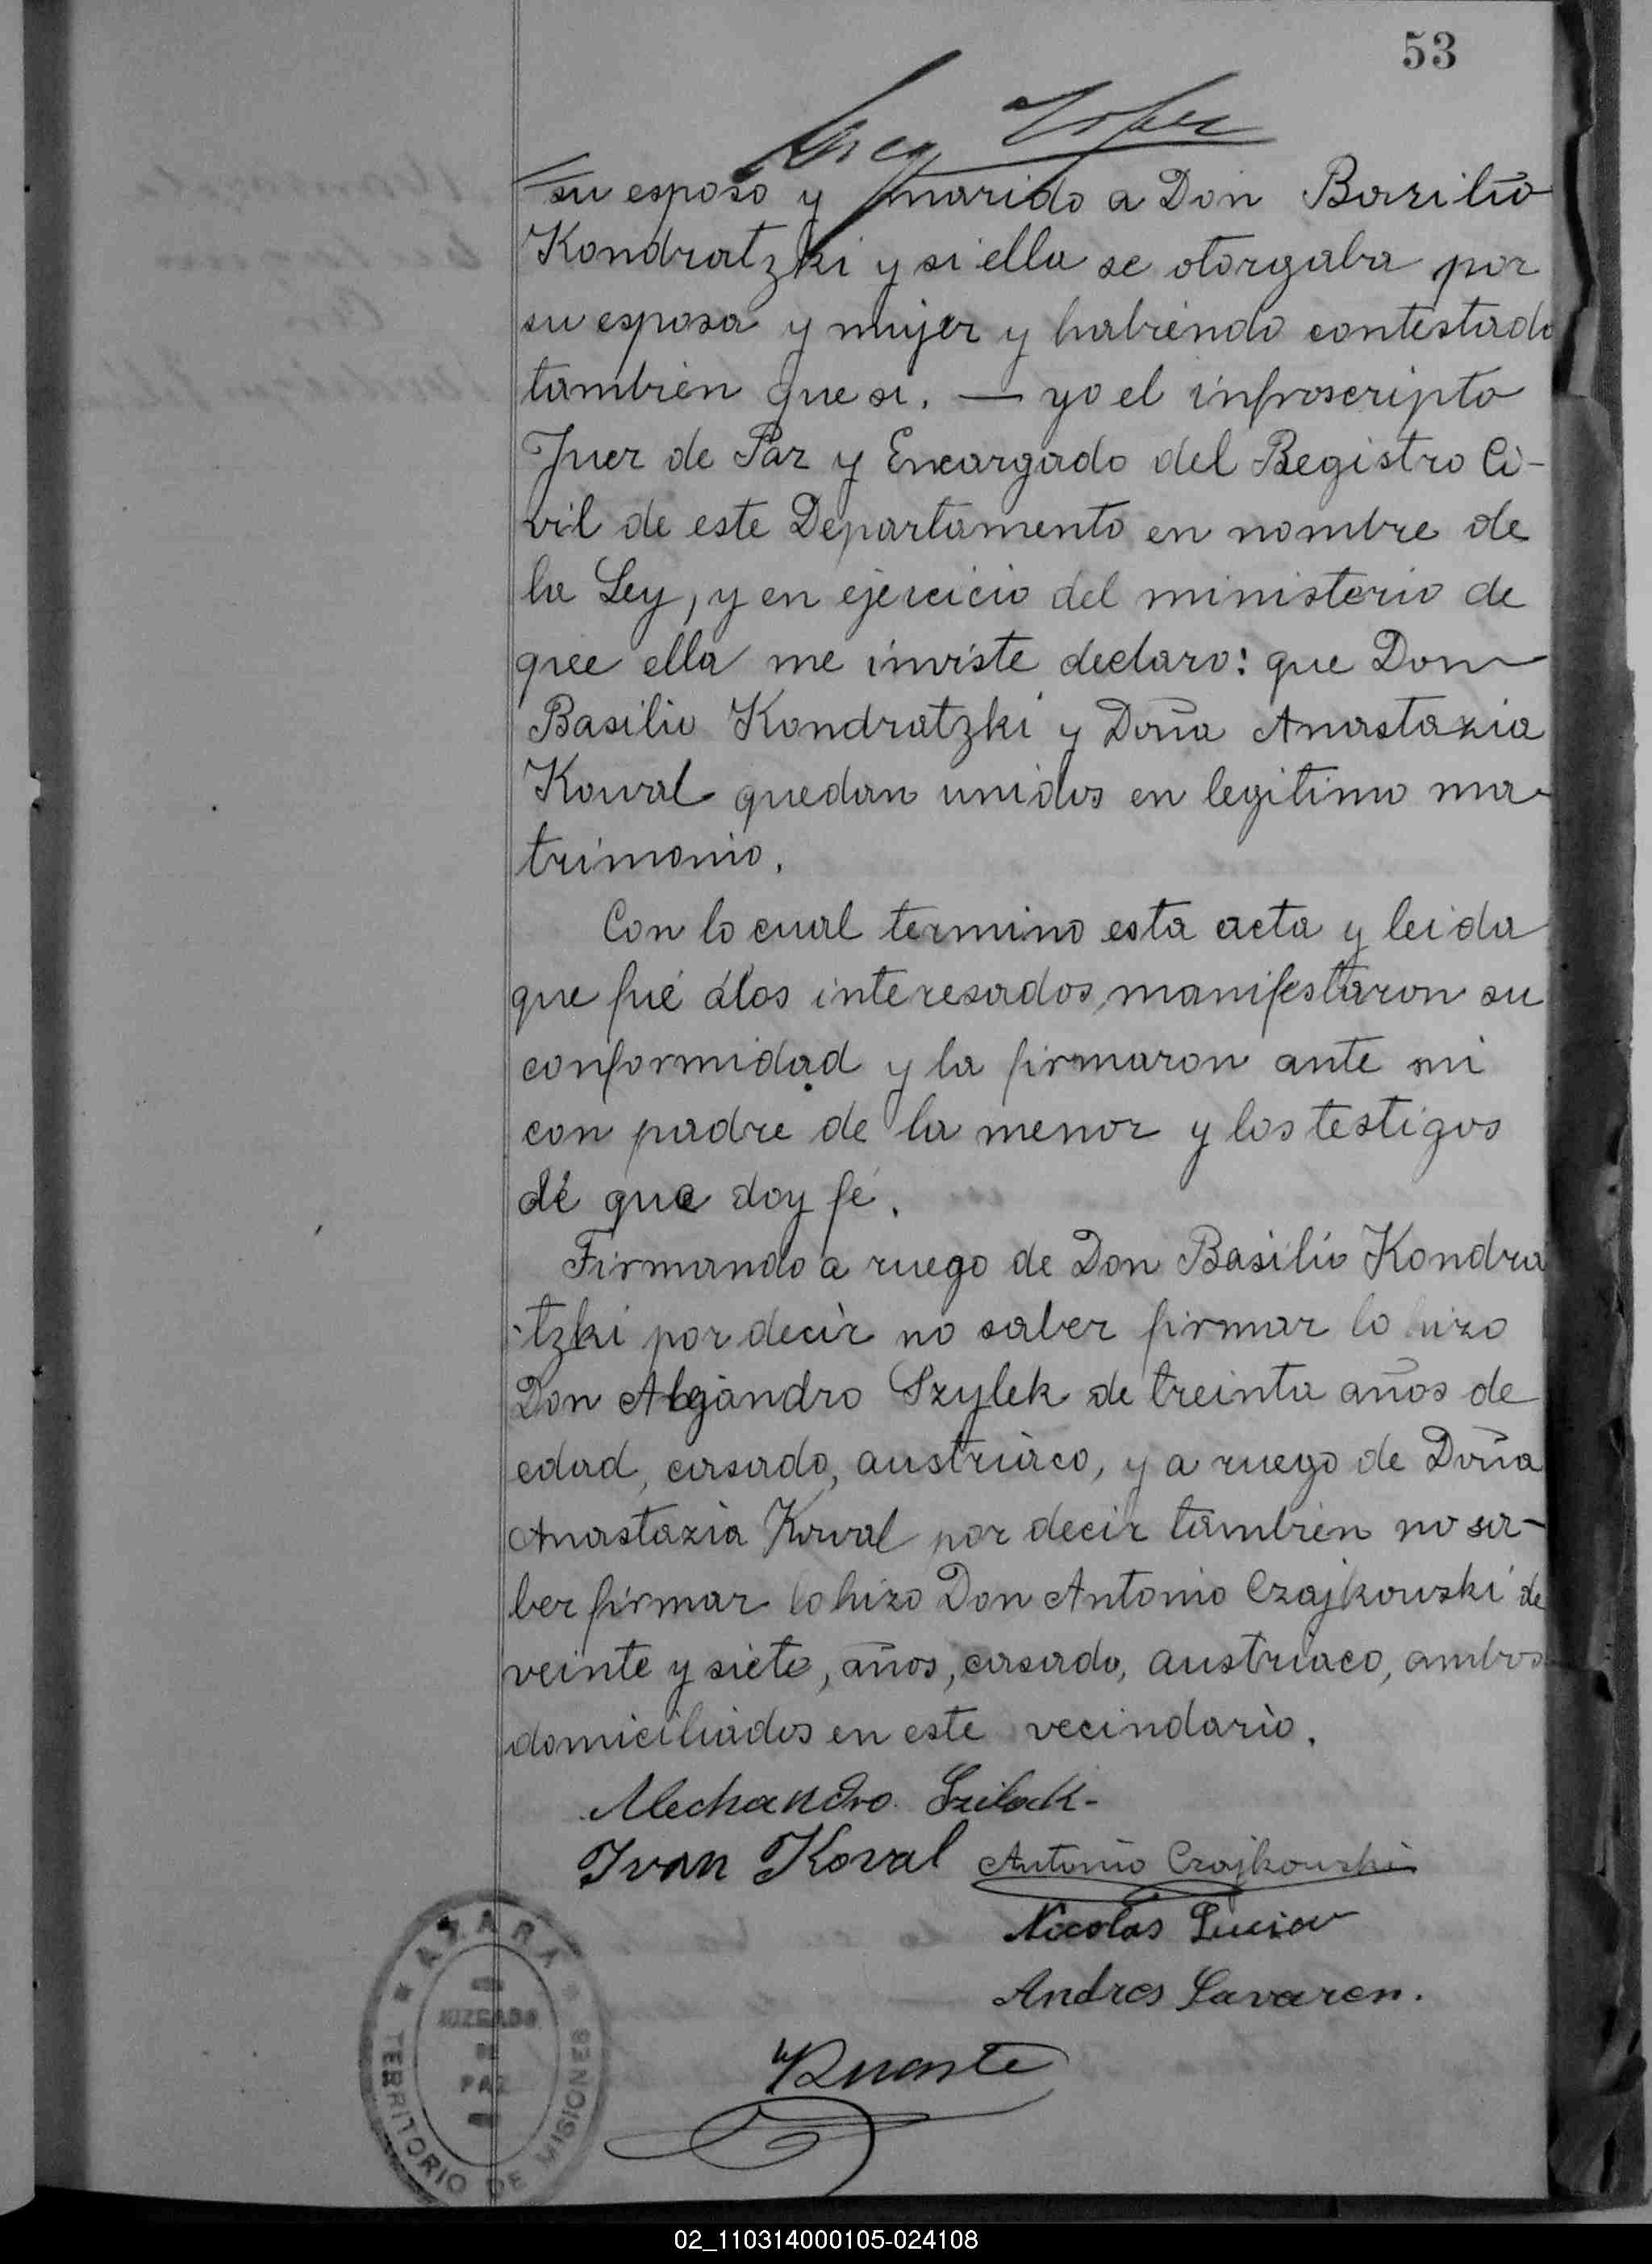 53
su esposo y marido a Don Barilio
Kondratzki y si ella se otorgaba por
su esposa y mujer y habiendo contestado
tambien que si. — yo el infroscripto
Juez de Paz y Encargado del Registro Ci-
vil de este Departamento en nombre de
la Ley, y en ejercicio del ministerio de
que ella me inviste declaro: que Don
Basilio Kondratzki y Doña Anastazia
Kowal quedan unidos en legitimo ma-
trimonio.
Con lo cual termino esta acta y leida
que fué á los interesados, manifestaron su
conformidad y la firmaron ante mi
con padre de la menor y los testigos
de que doy fé.
Firmando a ruego de Don Basilio Kondra
-tzki por decir no saber firmar lo hizo
Don Alejandro Szylek de treinta años de
edad, casado, austriaco, y a ruego de Doña
Anastazia Kowal por decir tambien no sa-
ber firmar lo hizo Don Antonio Czajkowski de
veinte y siete, años, casado, austriaco, ambos
domiciliados en este vecindario.
Alechandro Szilack-
Ivan Koval Antonio Czajkowski
Nicolas
Andres Savaren.
Duarte
AZARA
JUZGADO
DE
PAZ
TERRITORIO DE MISIONES
02_110314000105-024108